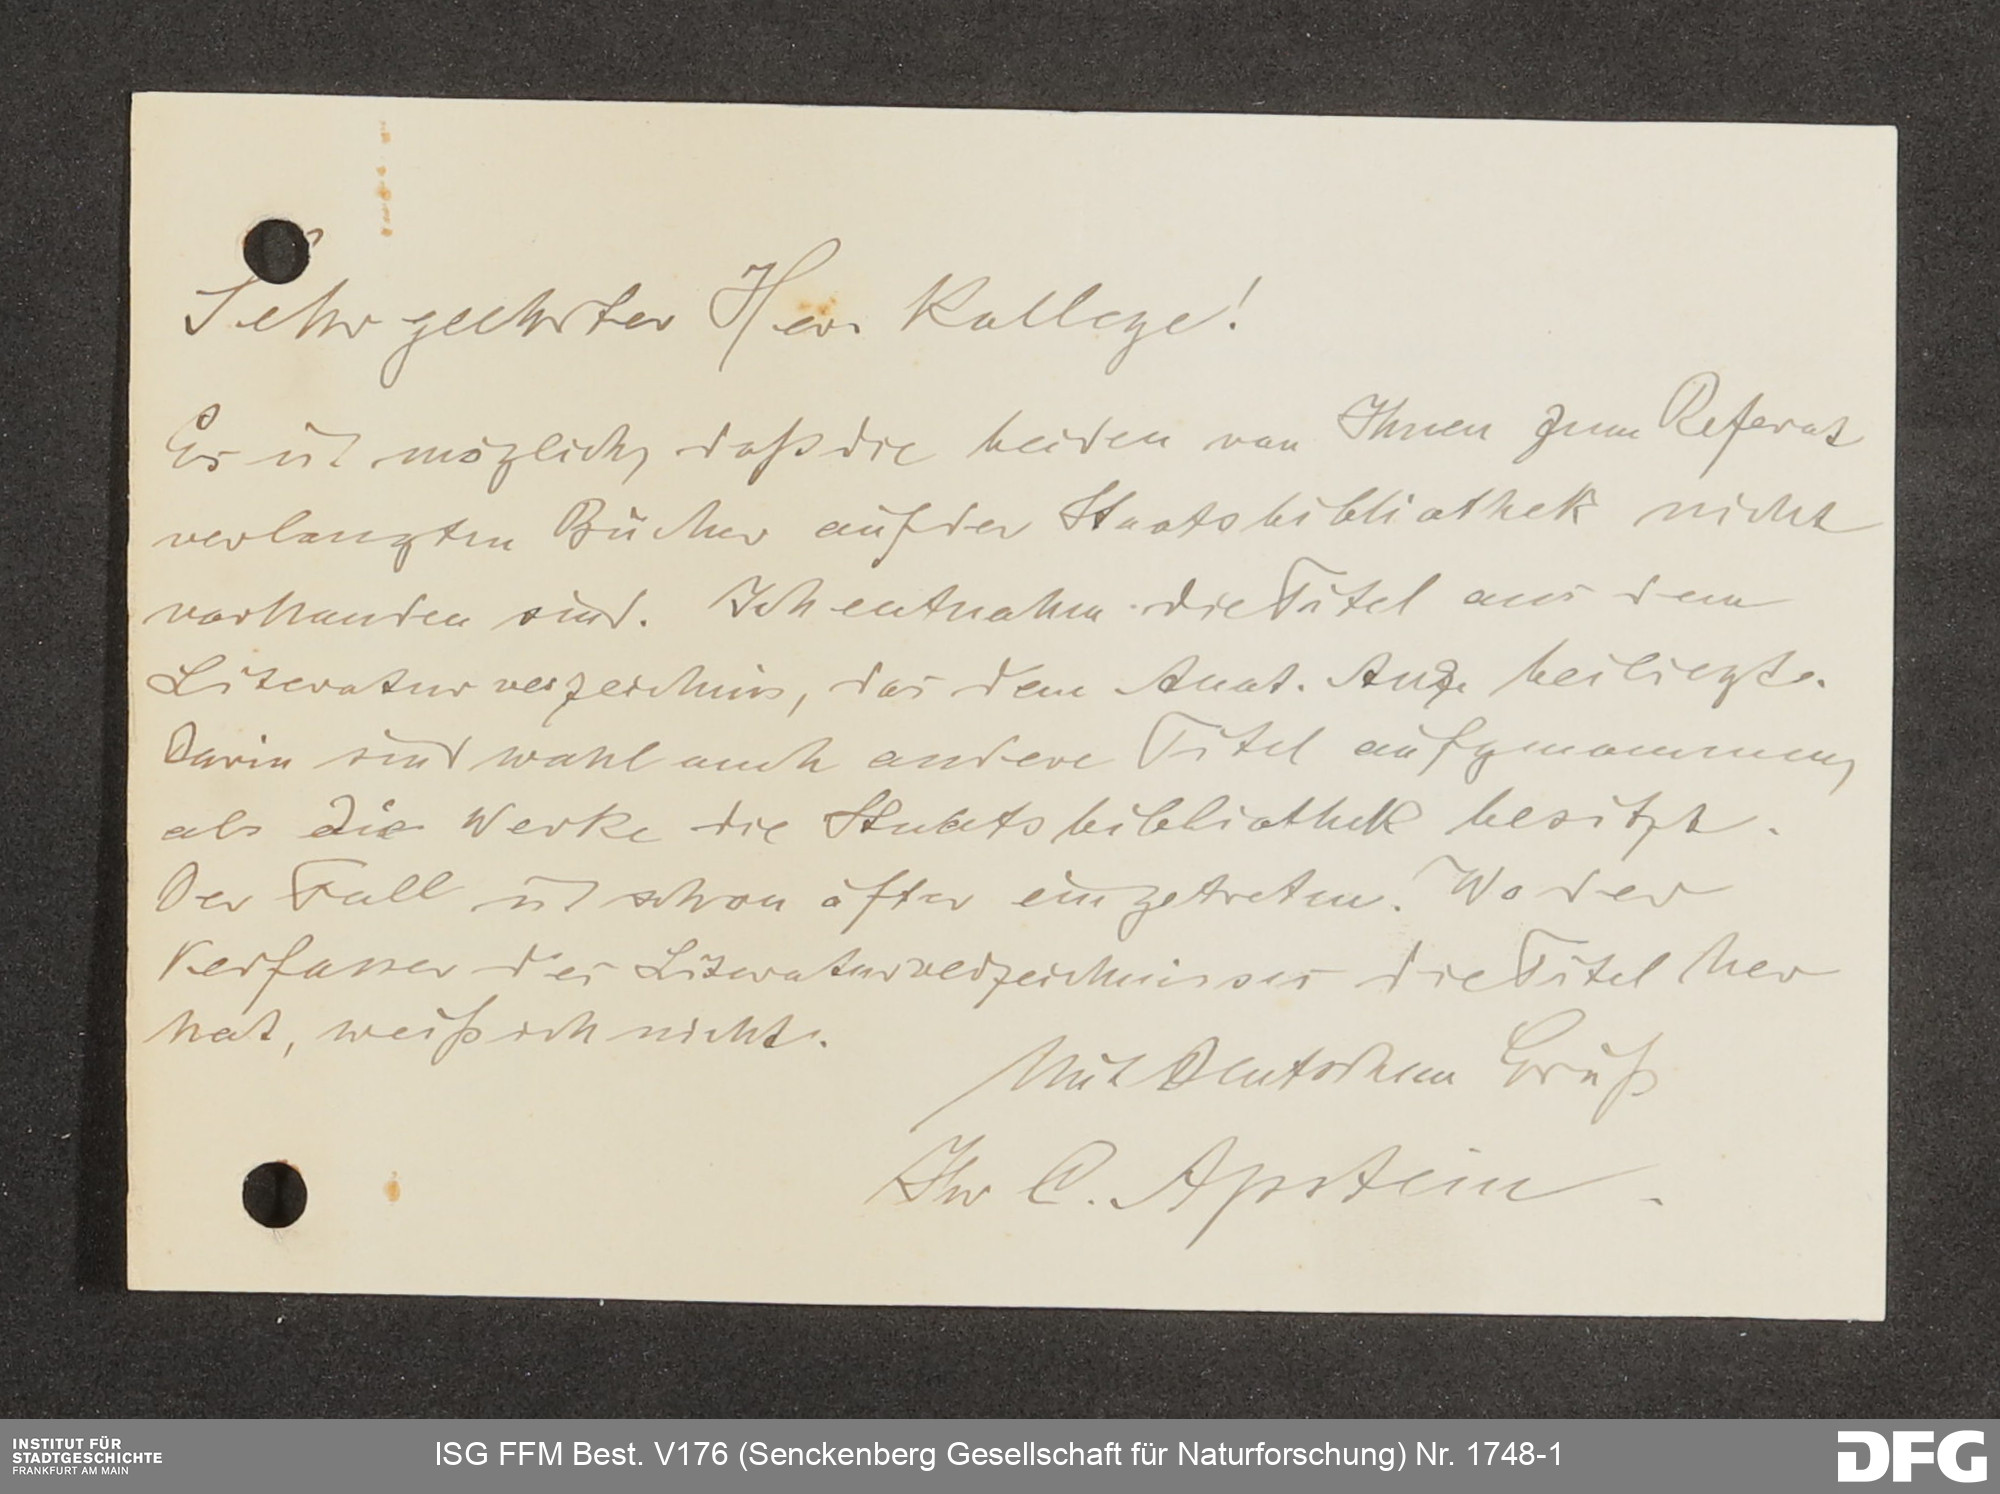 Sehr geehrter Herr Kollege!
Es ist möglich, daß die beiden von Ihnen zum Referat
verlangten Bücher auf der Staatsbibliothek nicht
vorhanden sind. Ich entnahm die Titel aus dem
Literaturverzeichnis, das dem Anat. Anz. beiliegt.
Darin sind wohl auch andere Titel aufgenommen,
als die Werke die Staatsbibliothek besitzt.
Der Fall ist schon öfter eingetreten. Wo der
Verfasser des Literaturverzeichnisses die Titel her
hat, weiß ich nicht.
Mit Deutschem Gruß
Ihr C. Apstein.
INSTITUT FÜR
STADTGESCHICHTE
FRANKFURT AM MAIN
ISG FFM Best. V176 (Senckenberg Gesellschaft für Naturforschung) Nr. 1748-1
DFG